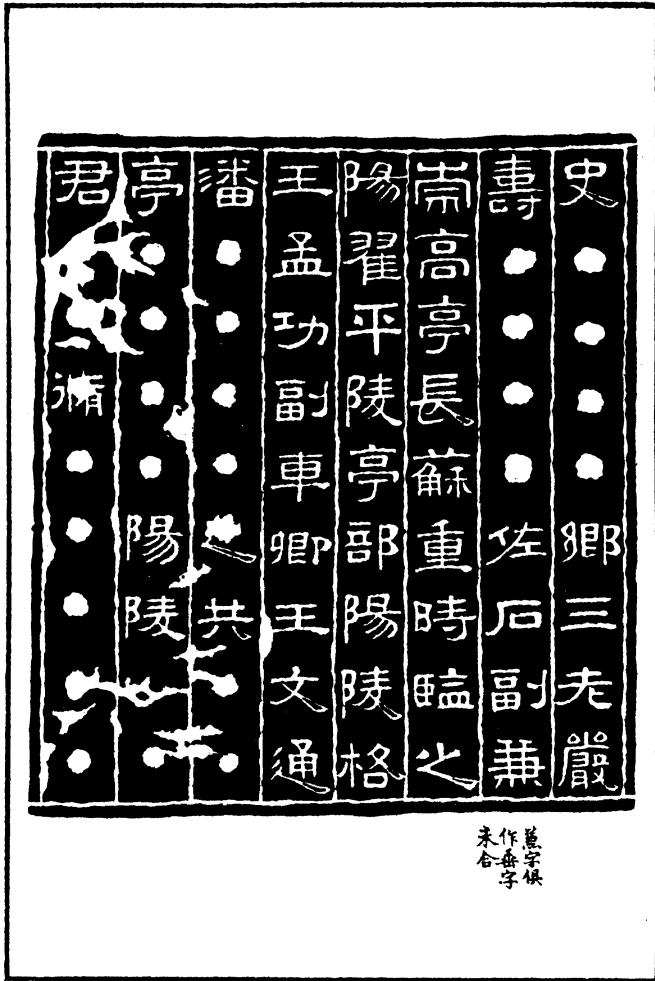 史●●●●鄉三老嚴
壽●●●●佐石副兼
崇高亭長蘇重時臨之
陽翟平陵亭部陽陵格
王孟功副車卿王文通
潘●●●●之共●●
亭●●●●陽陵●●
君●●脩●●●●●
字俱
作垂字
未合